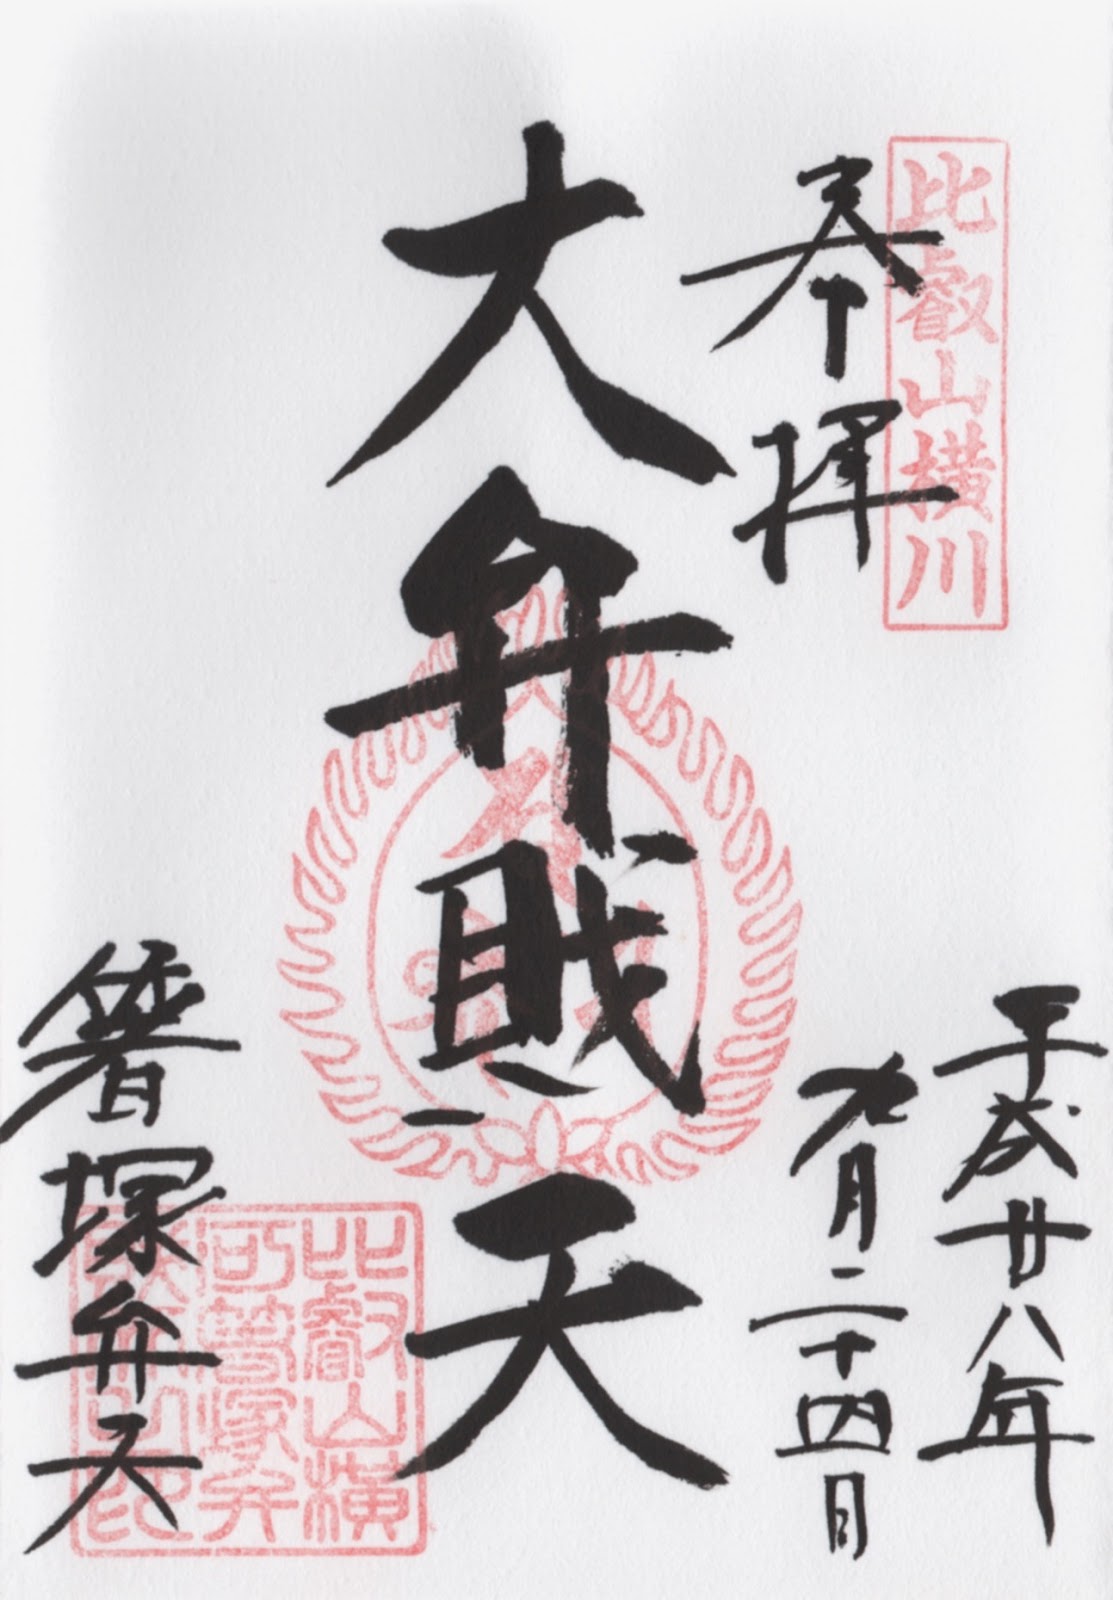 比叡山横川
奉拝
平成廿八年
九月二十四日
大弁財天
箸塚弁天
比叡山横